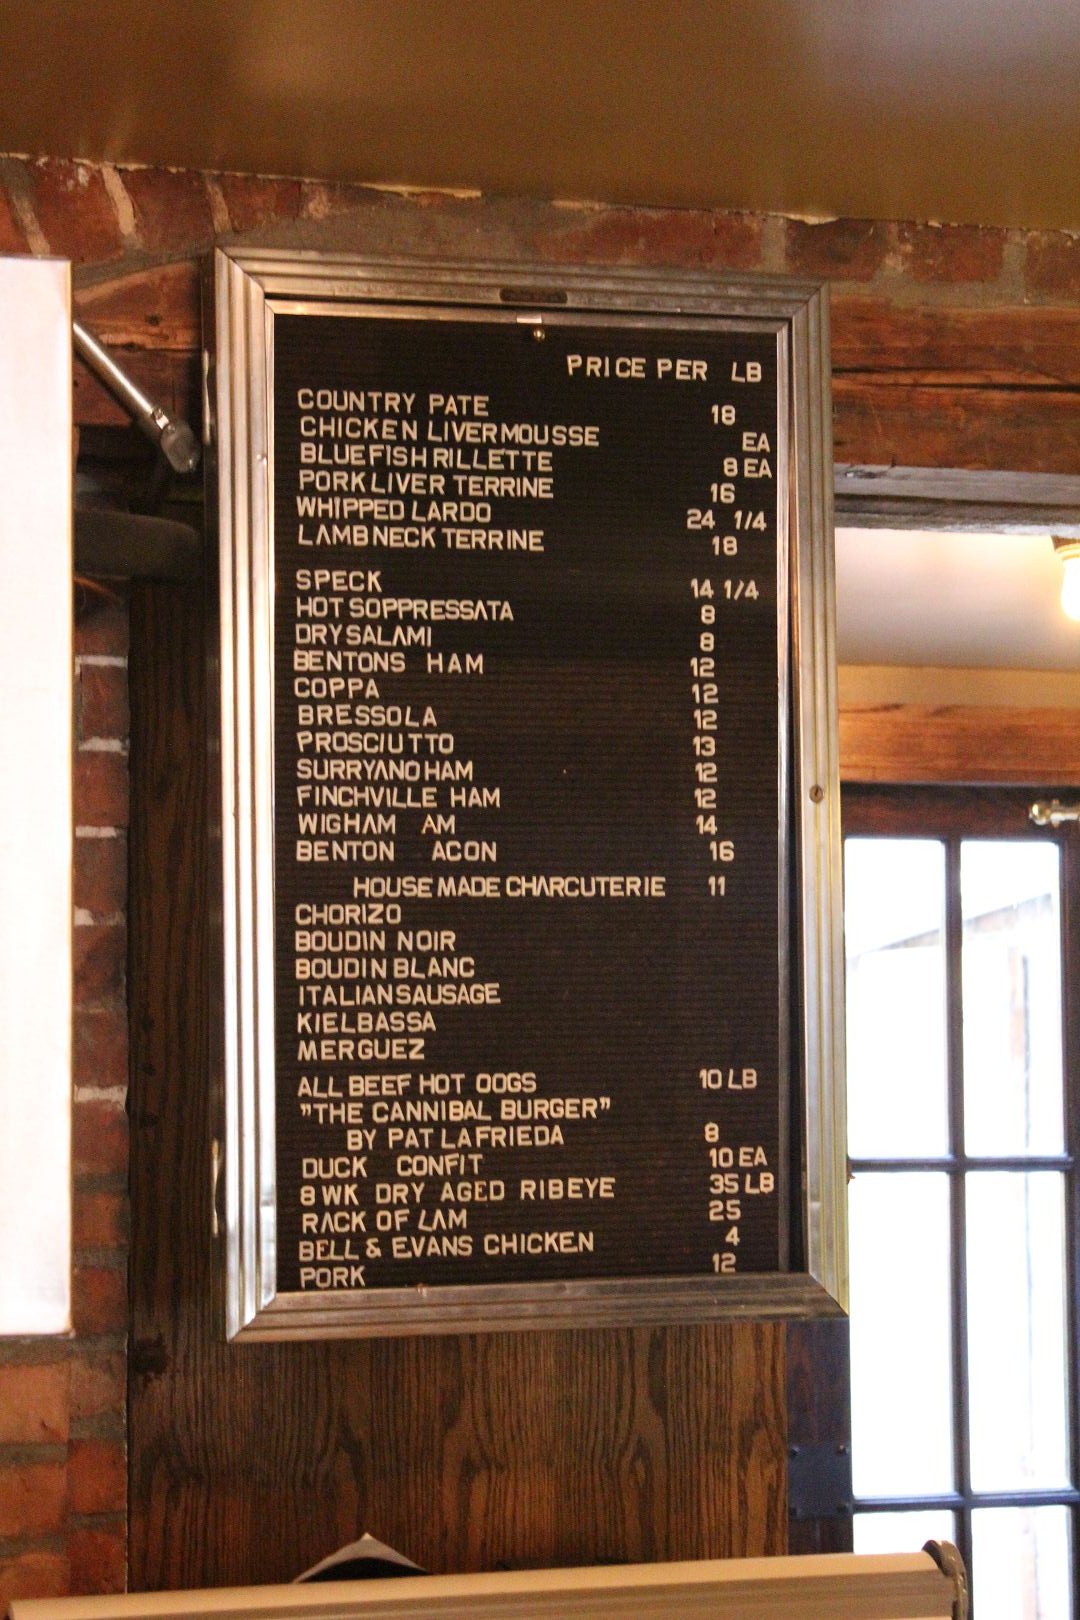 PRICE PER LB
COUNTRY PATE 18
CHICKEN LIVER MOUSSE EA
BLUEFISH RILLETTE 8 EA
PORK LIVER TERRINE 16
WHIPPED LARDO 24 1/4
LAMB NECK TERRINE 18
SPECK 14 1/4
HOT SOPPRESSATA 8
DRY SALAMI 8
BENTONS HAM 12
COPPA 12
BRESSOLA 12
PROSCIUTTO 13
SURRYANO HAM 12
FINCHVILLE HAM 12
WIGHAM AM 14
BENTON ACON 16
HOUSE MADE CHARCUTERIE 11
CHORIZO
BOUDIN NOIR
BOUDIN BLANC
ITALIAN SAUSAGE
KIELBASSA
MERGUEZ
ALL BEEF HOT OOGS 10 LB
"THE CANNIBAL BURGER"
BY PAT LAFRIEDA 8
DUCK CONFIT 10 EA
8 WK DRY AGED RIBEYE 35 LB
RACK OF LAM 25
BELL & EVANS CHICKEN 4
PORK 12